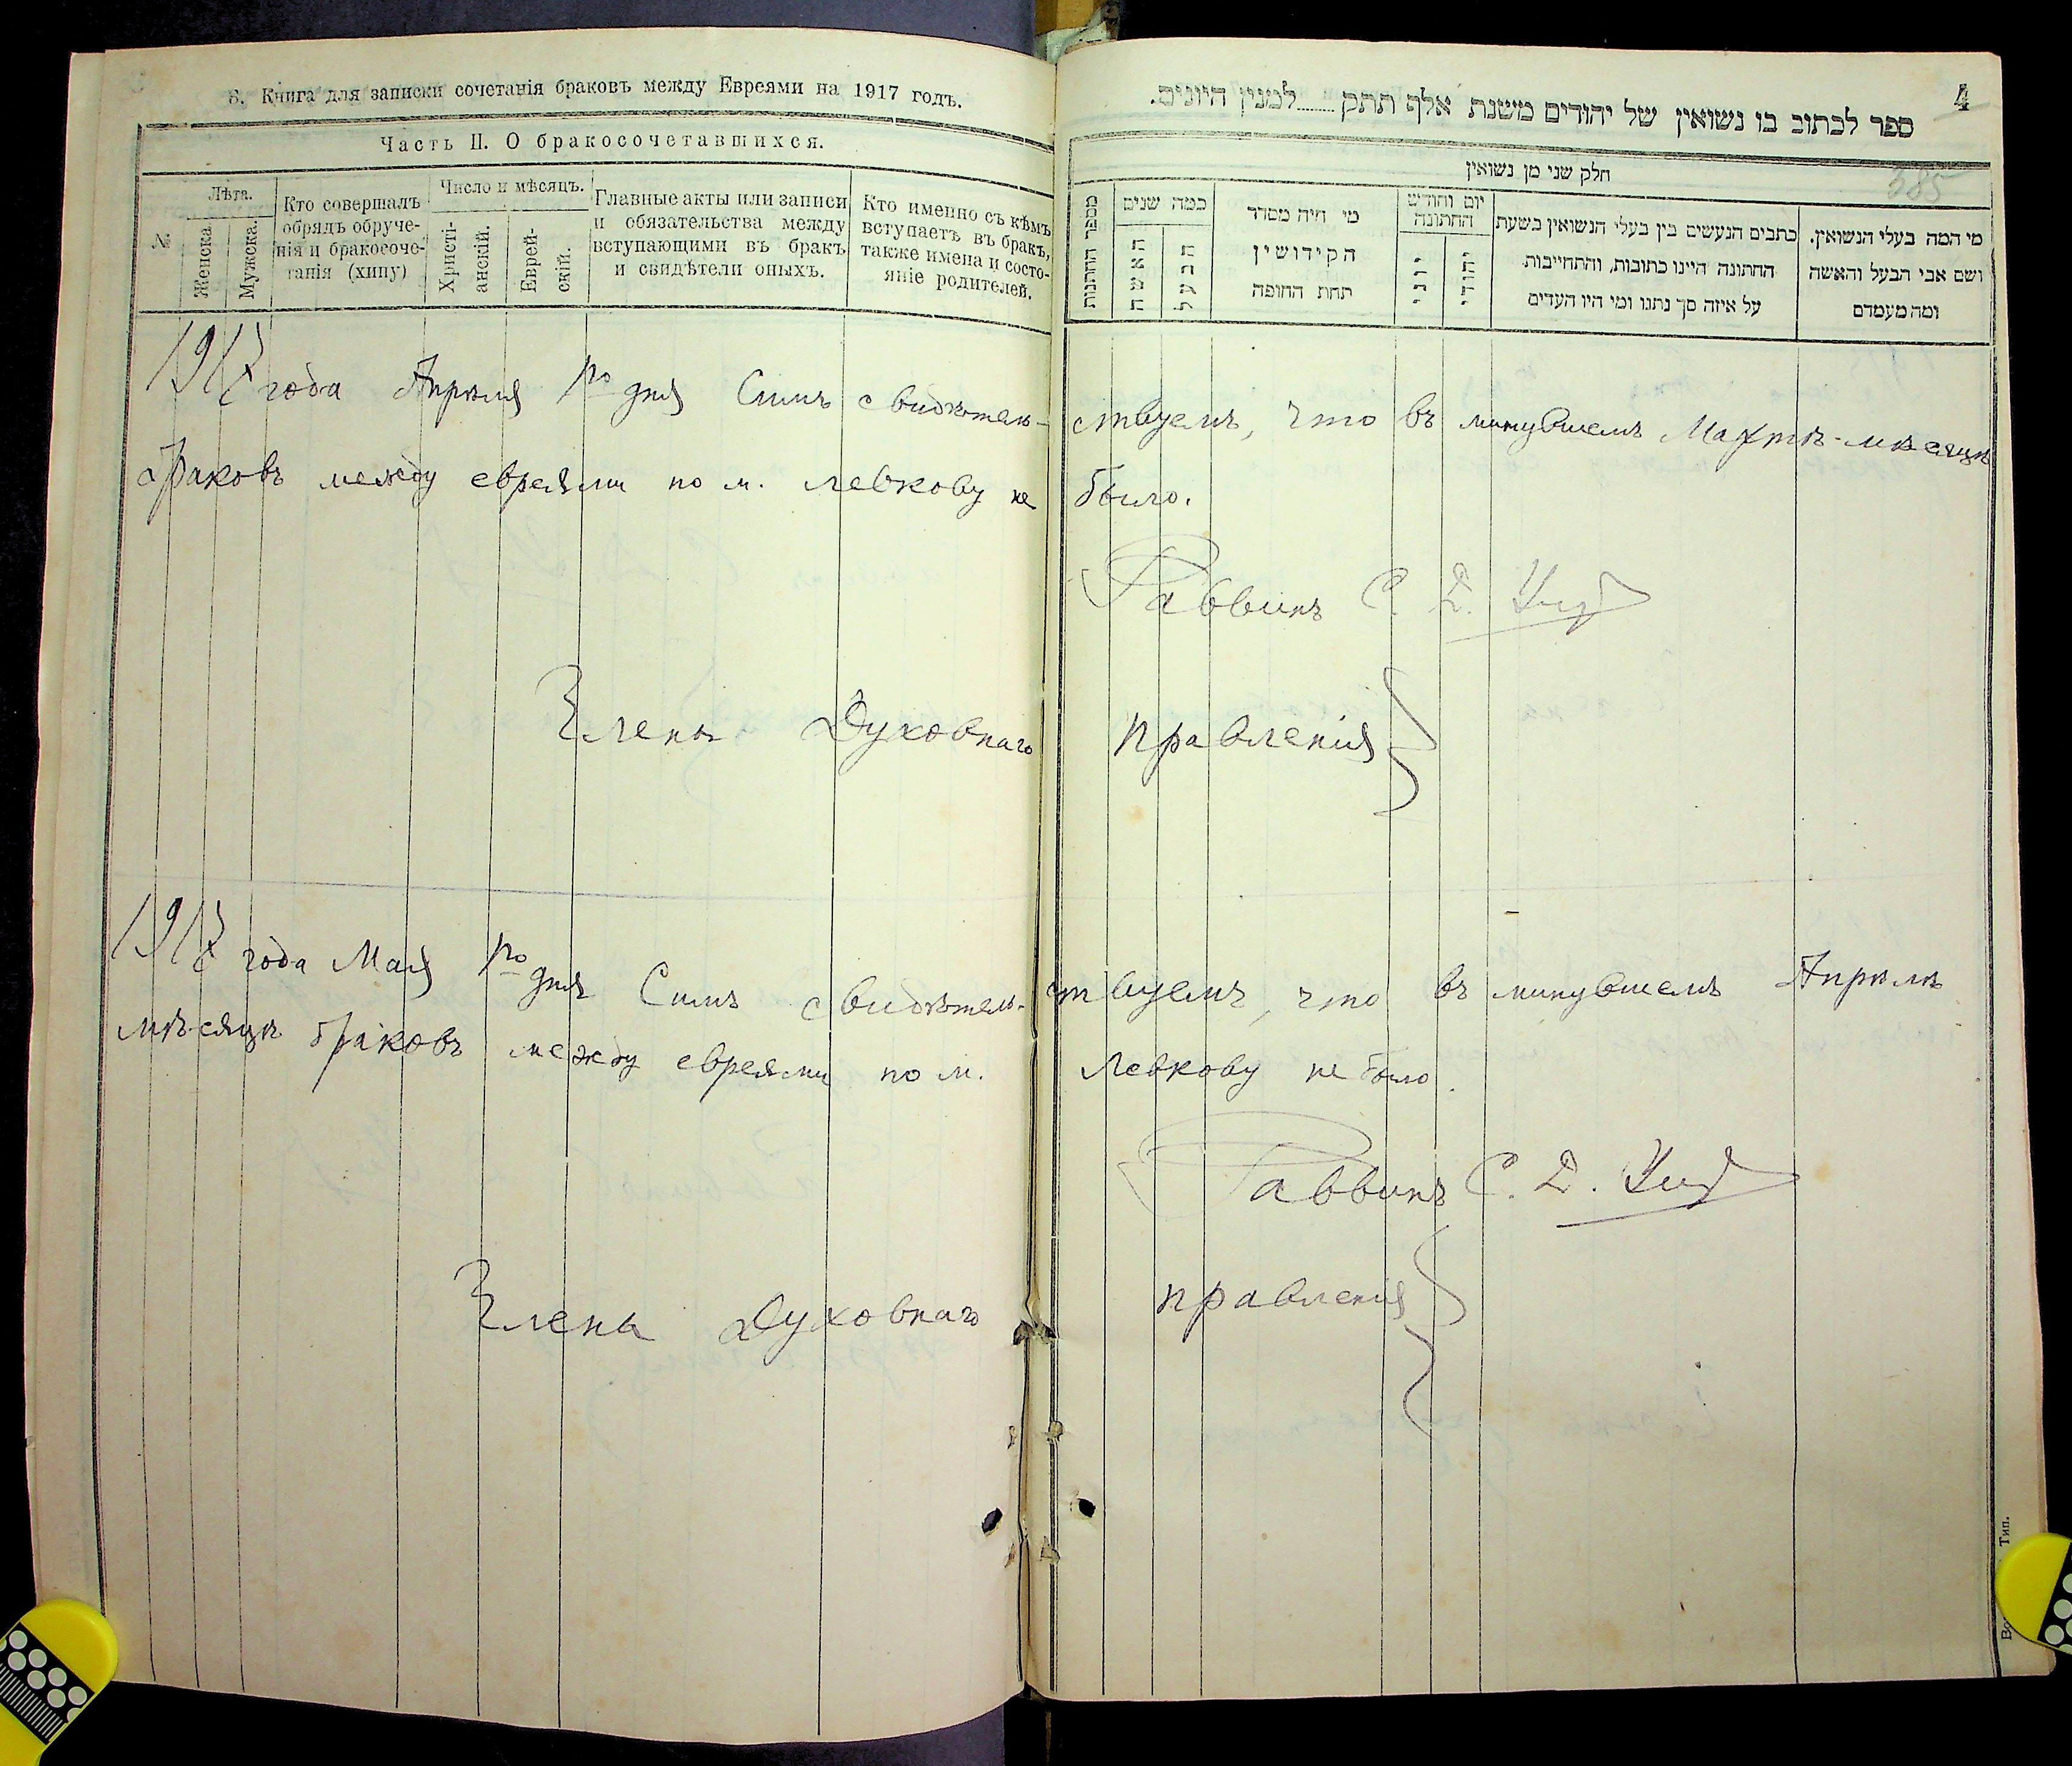 8. Книга для записки сочетанія браковъ между Евреями на 1917 годъ.
Часть II. О бракосочетавшихся.
№
Лѣта.
Женска.
Мужска.
Кто совершалъ
обрядъ обруче-
нія и бракосоче-
танія (хипу)
Число и мѣсяцъ.
Христі-
анскій.
Еврей-
скій.
Главные акты или записи
и обязательства между
вступающими въ бракъ
и свидѣтели оныхъ.
Кто именно съ кѣмъ
вступаетъ въ бракъ,
также имена и состо-
яніе родителей.
4
ספר לכתוב בו נשואין של יהודים משנת אלף תתק......למנין היונים.
385
חלק שני מן נשואין
מספר החתנות
כמה שנים
האשה
הבעל
מי היה מסדר
הקידושין
תחת החופה
יום וחודש
החתונה
יוני
יהודי
כתבים הנעשים בין בעלי הנשואין בשעת
החתונה היינו כתובות, והתחייבות
על איזה סך נתנו ומי היו העדים
מי המה בעלי הנשואין.
ושם אבי הבעל והאשה
ומה מעמדם
1917 года Апрѣля 1го дня Симъ свидѣтель-ствуемъ, что въ минувшемъ Мартѣ-мѣсяцѣ
браковъ между евреями по м. Левкову не было.
Раввинъ С. Д.
Члены Духовнаго правленія
1917 года Мая 1го дня Симъ свидѣтель-ствуемъ, что въ минувшемъ Апрѣлѣ
мѣсяцѣ браковъ между евреями по м. Левкову не было.
Раввинъ С. Д.
Члены Духовнаго правленія
Тип.